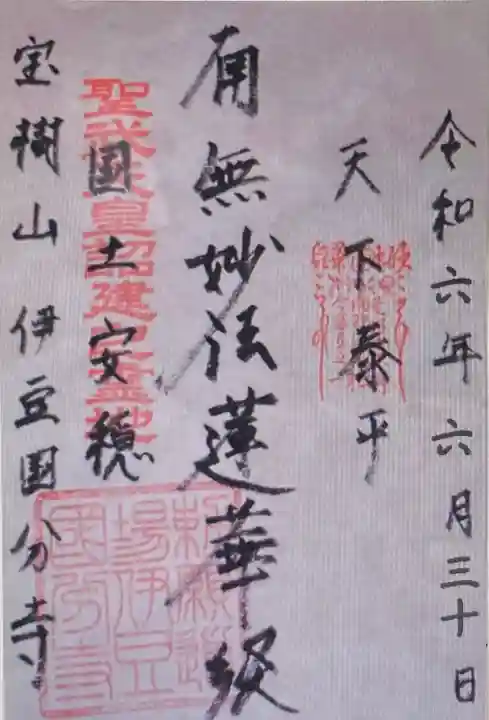 令和六年六月三十日
天下泰平
南無妙法蓮華経
国土安穏
聖武天皇詔建皇孟地
宝樹山 伊豆国分寺
勅願道
場伊豆
國分寺